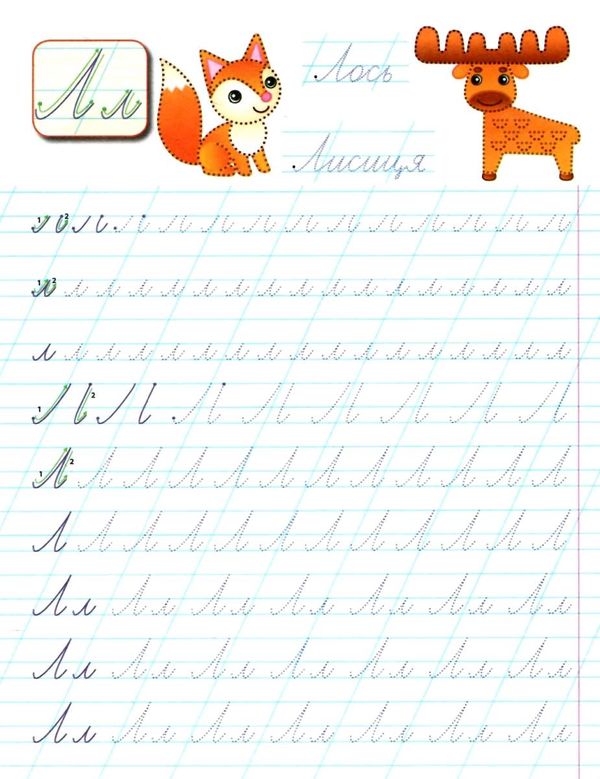 Л л
Лось
Лисиця
1 2 л л л л л л л л л л
1 2 л л л л л л л л л л л л л л л л л л л л
л л л л л л л л л л л л л л л л л л л л
1 2 Л Л Л Л Л Л Л
1 2 Л Л Л Л Л Л Л Л Л Л Л Л
Л Л Л Л Л Л Л Л Л Л Л Л
Лл Лл Лл Лл Лл Лл Лл
Лл Лл Лл Лл Лл Лл Лл
Лл Лл Лл Лл Лл Лл Лл